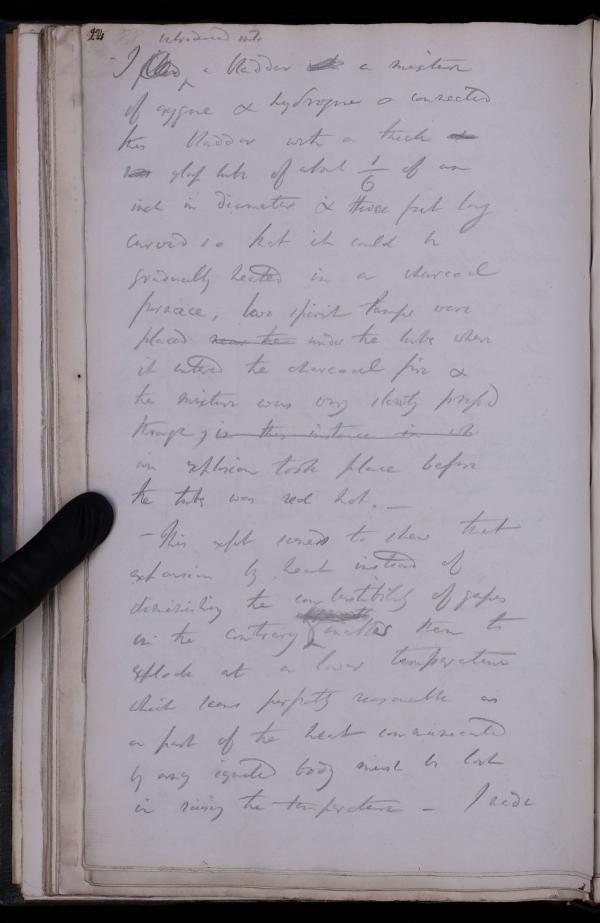 introduced into
I a bladder a mixture
of oxygene & hydrogene & connected
this bladder with a thick
glass tube of about 1/6 of an
inch in diameter & three feet long
curved so that it could be
gradually heated in a charcoal
furnace, two spirit lamps were
placed near the under the tube where
it entered the charcoal fire &
the mixture was very slowly passed
through in this instance in wh
an explosion took place before
the tube was red hot. —
— This expt seems to shew that
expansion by heat instead of
diminishing the combustibility of gases
on the contrary enables them to
explode at a lower temperature
which seems perfectly reasonable as
a part of the heat communicated
by any ignited body must be lost
in raising the temperature — I made